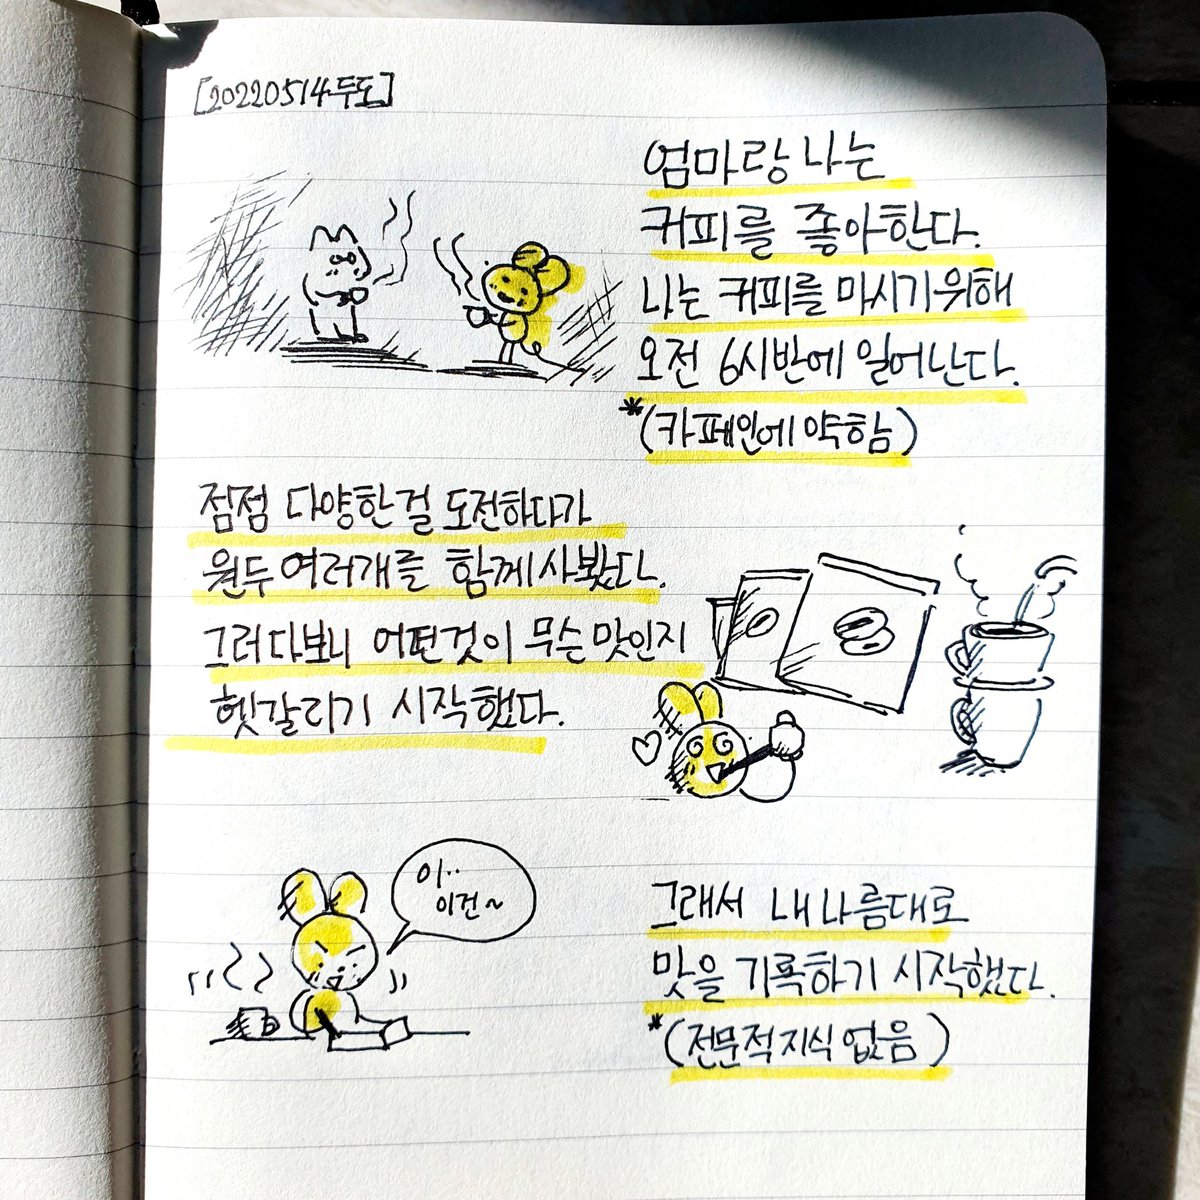 [20220514두도]
엄마랑 나는
커피를 좋아한다.
나는 커피를 마시기위해
오전 6시반에 일어난다.
*(카페인에약함)
점점 다양한걸 도전하다가
원두여러개를 함께사봤다.
그러다보니 어떤것이 무슨맛인지
헷갈리기 시작했다.
이..
이건~
그래서 내나름대로
맛을 기록하기 시작했다.
*(전문적지식없음)